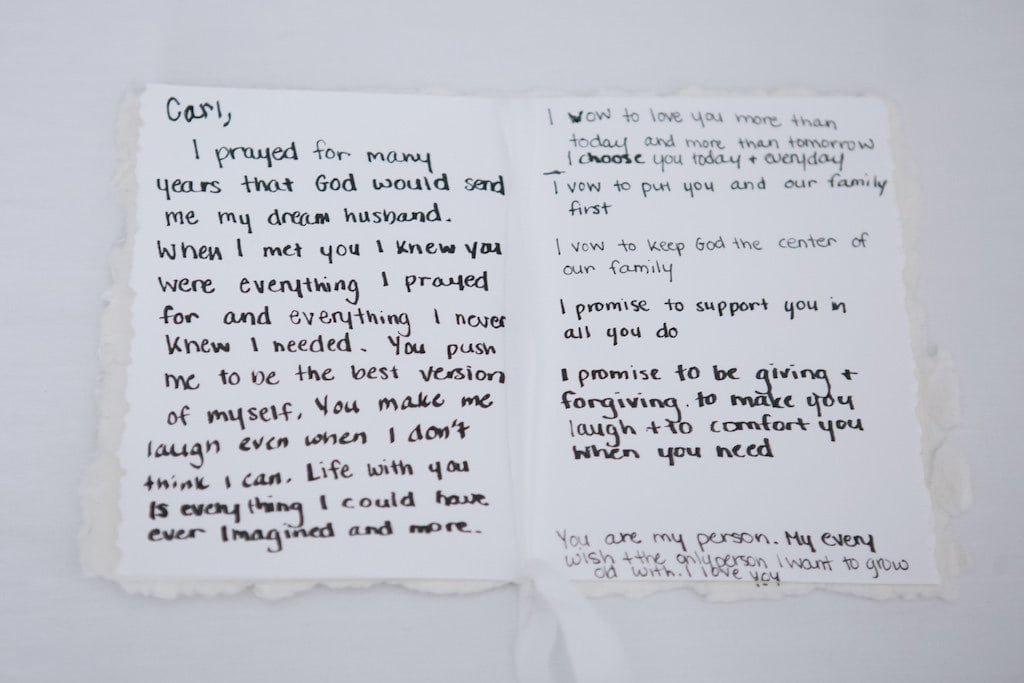 Carl,
I prayed for many
years that God would send
me my dream husband.
When I met you I knew you
were everything I prayed
for and everything I never
knew I needed. You push
me to be the best version
of myself. You make me
laugh even when I don't
think I can. Life with you
Is everything I could have
ever Imagined and more.
I vow to love you more than
today and more than tomorrow
I choose you today + everyday
I vow to put you and our family
first
I vow to keep God the center of
our family
I promise to support you in
all you do
I promise to be giving +
forgiving. to make you
laugh + to comfort you
when you need
You are my person. My every
wish + the only person I want to grow
old with. I love you